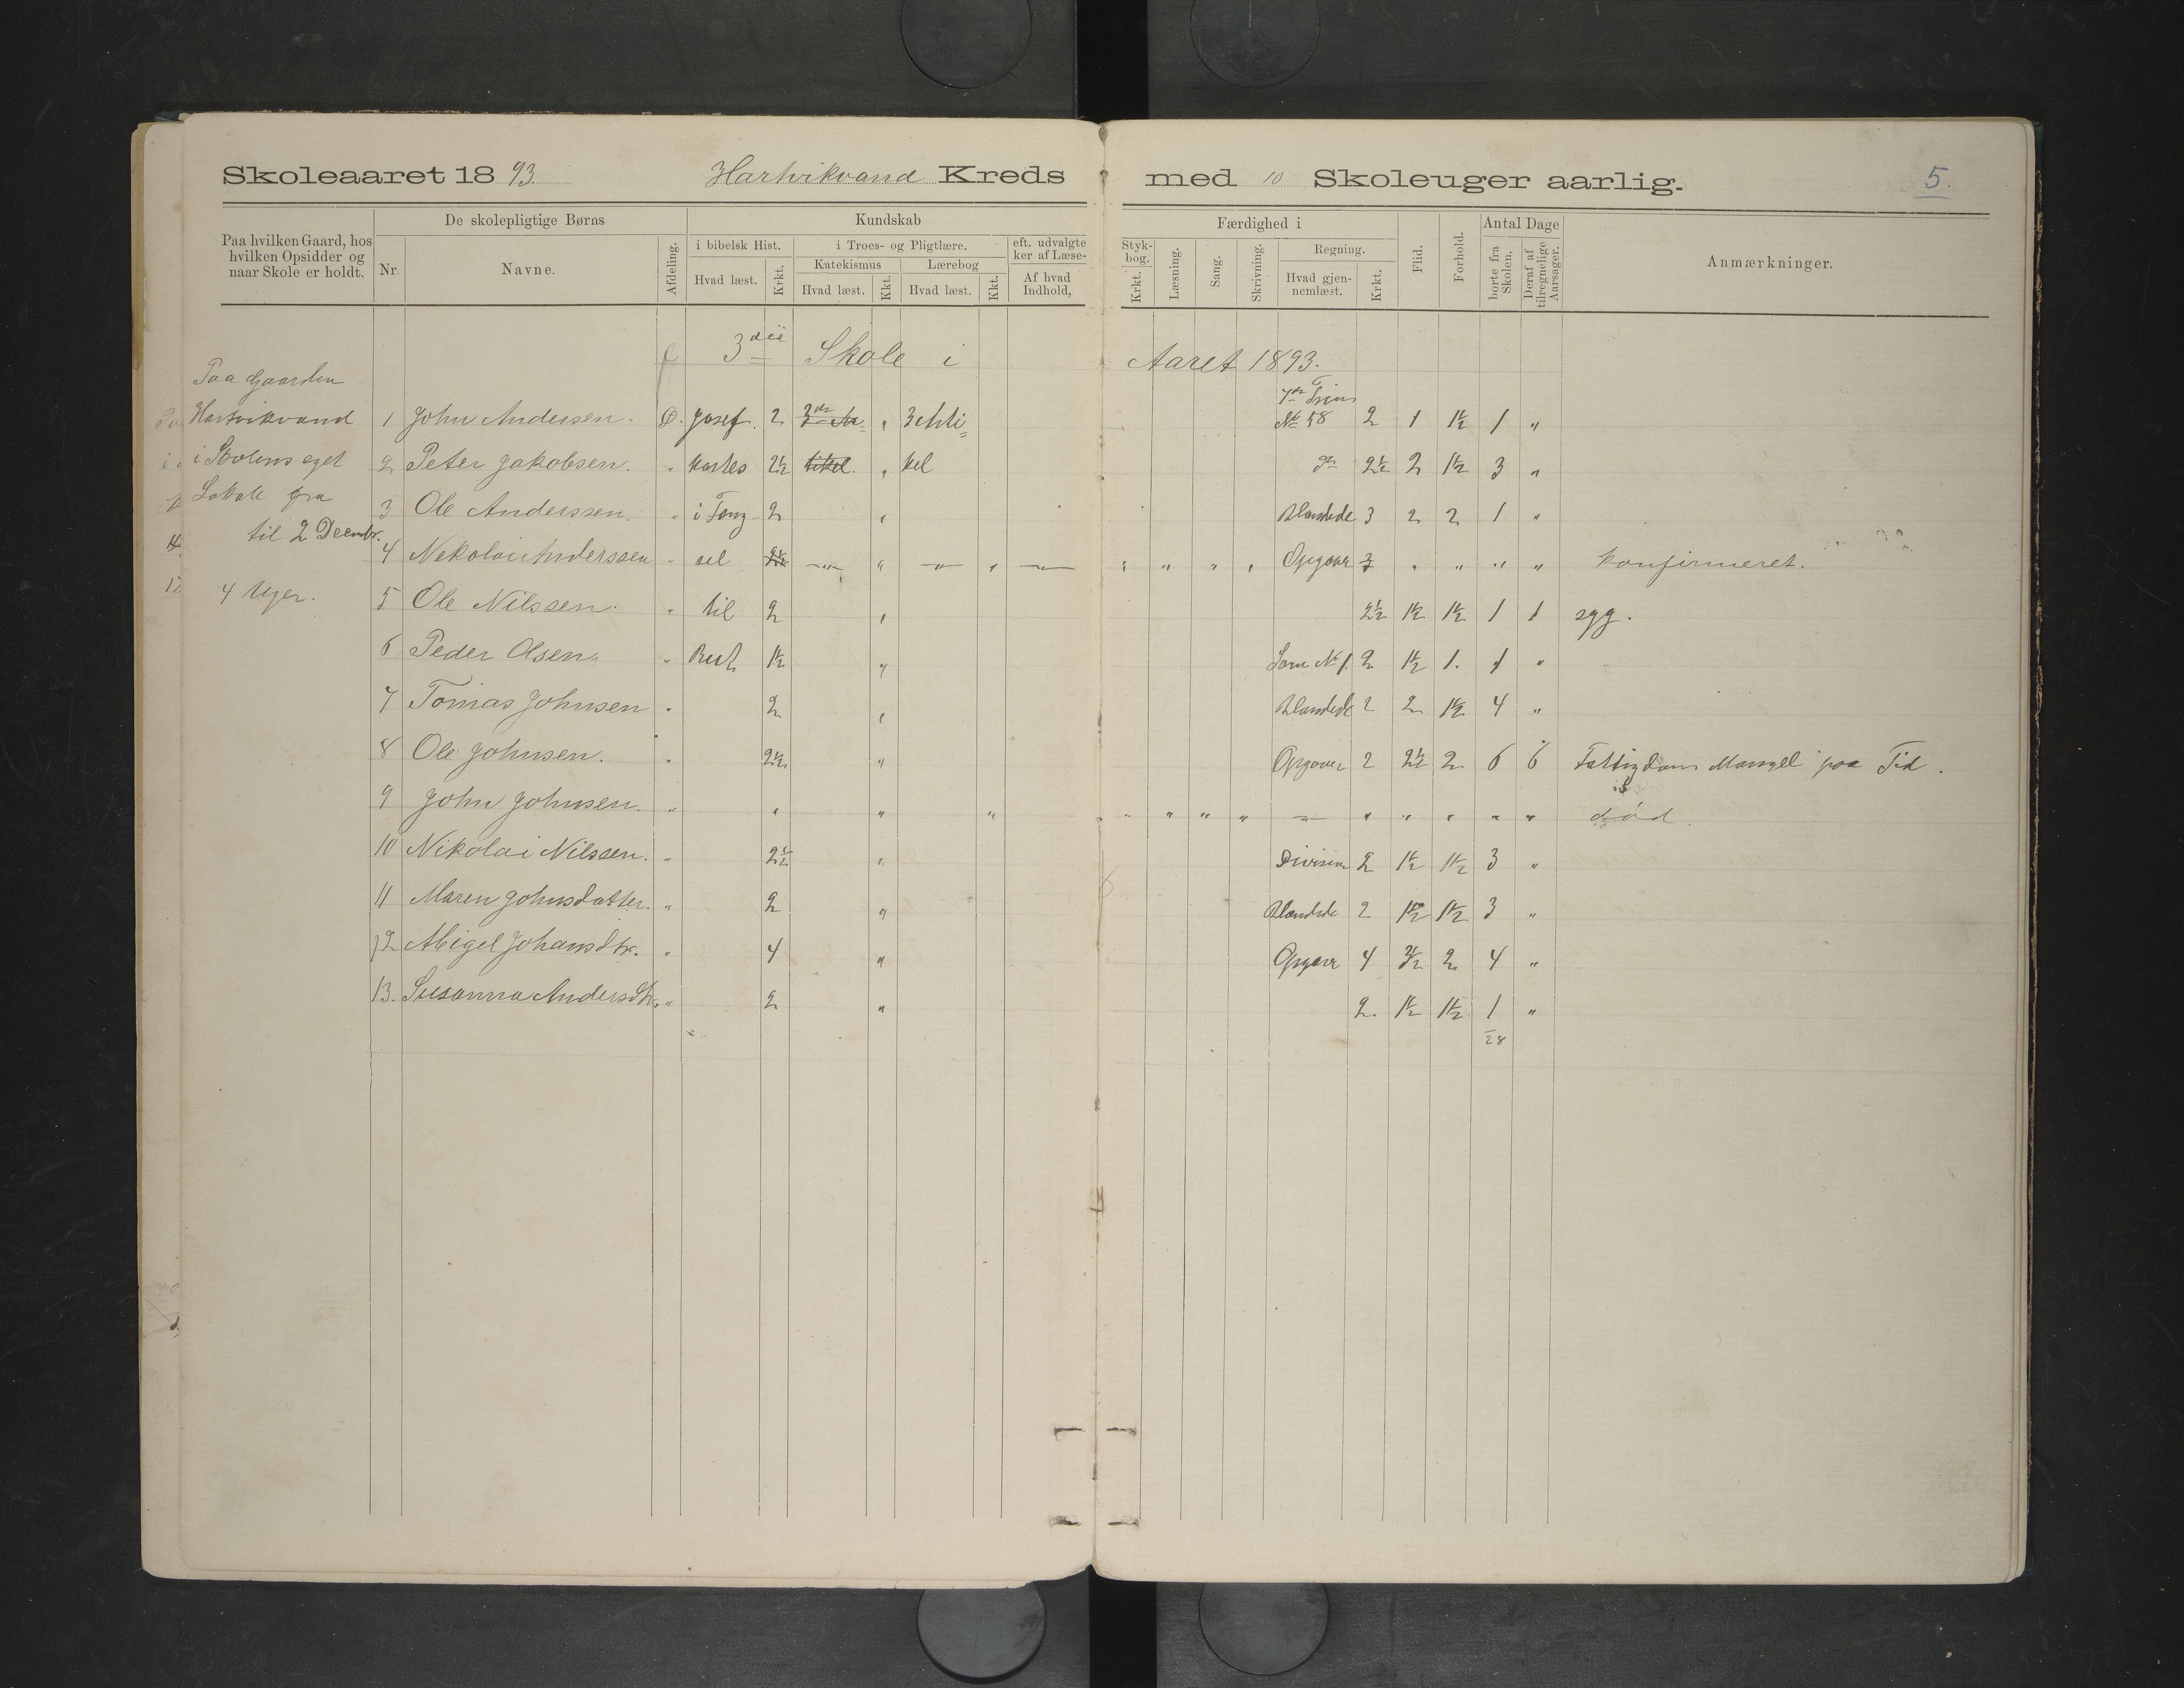 Skoleaaret 18 93. Hartvikvand Kreds med 10 Skoleuger aarlig. 5.
Paa hvilken Gaard, hos hvilken Opsidder og naar Skole er holdt.
De skolepligtige Børns
Nr. Navne.
Afdeling.
Kundskab
i bibelsk Hist.
Hvad læst. Krkt.
i Troes- og Pligtlære.
Katekismus Lærebog
Hvad læst. Kkt. Hvad læst. Kkt.
eft. udvalgte
ker af Læse-
Af hvad
Indhold,
Færdighed i
Styk-
bog.
Krkt. Læsning. Sang. Skrivning.
Regning.
Hvad gjen-
nemlæst. Krkt.
Flid. Forhold.
Antal Dage
borte fra Skolen. Deraf af tilregnelige Aarsager.
Anmærkninger.
3die Skole i Aaret 1893.
Paa Gaarden
Hartvikvand
i Skolens eget
Lokale fra
til 2 Decmbr.
4 Uger.
1 John Andersen. Ø. Josef. 2 " 3 Arti= No 58 2 1 1½ 1 "
2 Peter Jakobsen. " kastes 2½ " kel do 2½ 2 1½ 3 "
3 Ole Anderssen. " i Fæng- 2 " Blandede 3 2 2 1 "
4 Nekolai Anderssen " sel " Opgaver " " " " konfirmeret.
5 Ole Nilssen. " til 2 " 2½ 1½ 1½ 1 1 syg.
6 Peder Olsen. " Ruth 1½ " Som No 1. 2 1½ 1. 1 "
7 Tomas Johnsen " 2 " Blandede 2 2 1½ 4 "
8 Ole Johnsen. " 2½ " Opgaver 2 2½ 2 6 6 Fattigdom Mangel paa Tid.
9 John Johnsen. " " " " " " " " " " " " " " død.
10 Nikolai Nilssen. " 2½ " Division 2 1½ 1½ 3 "
11 Maren Johnsdatter. " 2 " Blandede 2 1½ 1½ 3 "
12 Abigel Johansdtr. " 4 " Opgaver 4 2 4 "
13. Susanna Andersdtr. " 2 " 2. 1½ 1½ 1 "
28